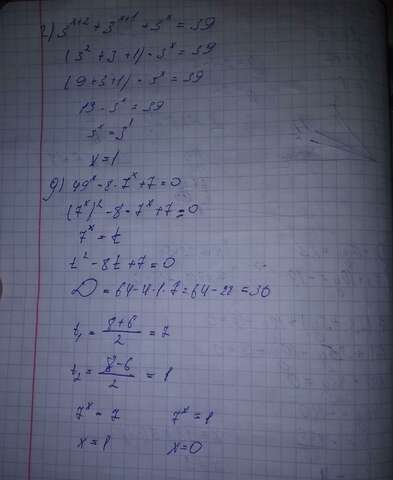 г) 3^(x+2) + 3^(x+1) + 3^x = 39
(3² + 3 + 1) · 3^x = 39
(9 + 3 + 1) · 3^x = 39
13 · 3^x = 39
3^x = 3^1
x = 1
д) 49^x - 8 · 7^x + 7 = 0
(7^x)² - 8 · 7^x + 7 = 0
7^x = t
t² - 8t + 7 = 0
D = 64 - 4 · 1 · 7 = 64 - 28 = 36
t₁ = (8+6)/2 = 7
t₂ = (8-6)/2 = 1
7^x = 7 7^x = 1
x = 1 x = 0